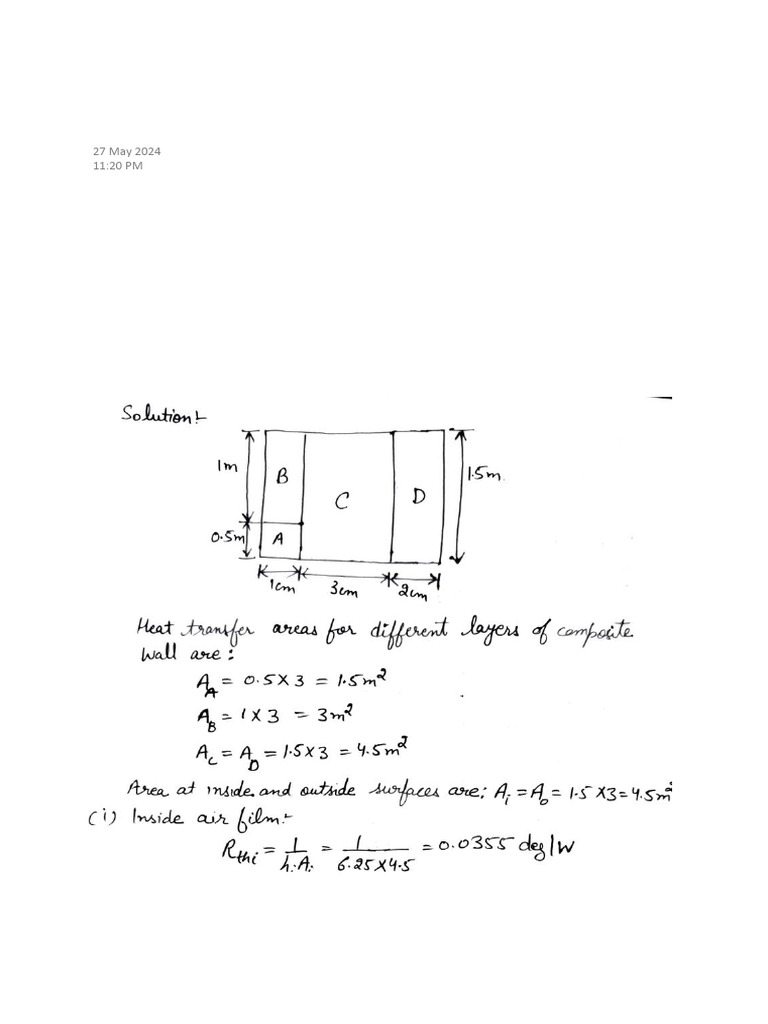 27 May 2024
11:20 PM
Solution:-
1m
B
C
D
1.5m.
0.5m
A
1cm
3cm
2cm
Heat transfer areas for different layers of composite
wall are:
A_A = 0.5 X 3 = 1.5m²
A_B = 1 X 3 = 3m²
A_C = A_D = 1.5 X 3 = 4.5m²
Area at inside and outside surfaces are: A_i = A_o = 1.5 X 3 = 4.5m²
(i) Inside air film:-
R_thi = 1/h_i A_i = 1/6.25 X 4.5 = 0.0355 deg/W